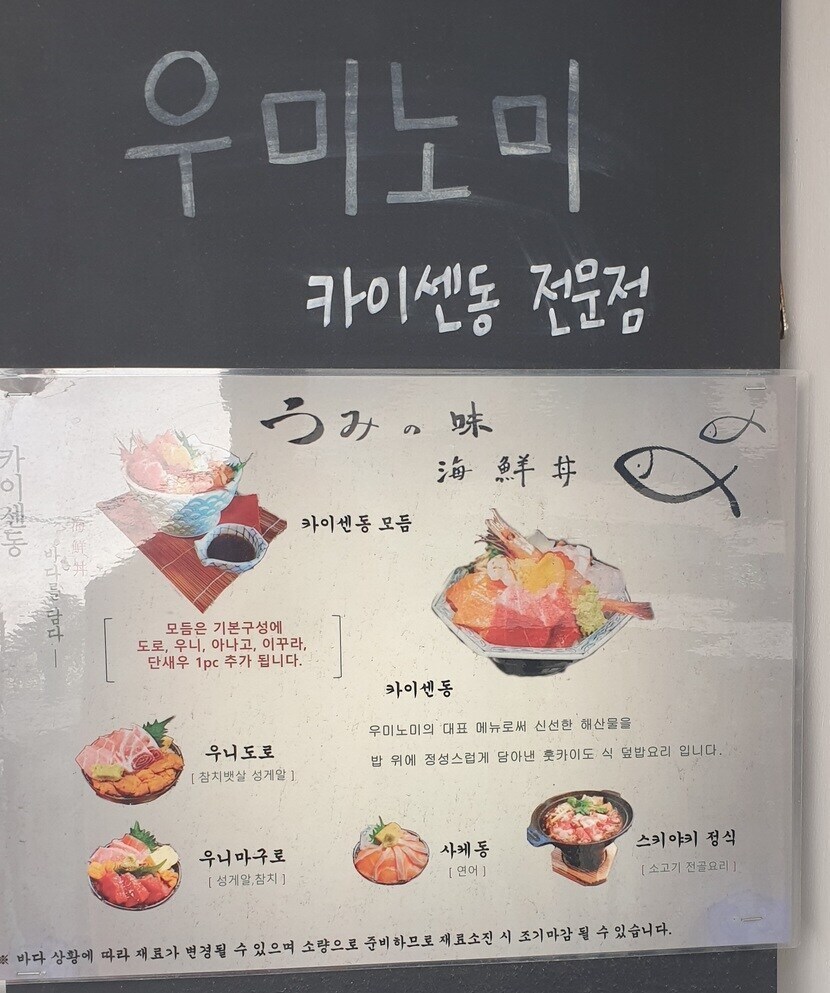 우미노미
카이센동 전문점
うみの味
海鮮丼
카이센동
海鮮丼
바다를 담다
카이센동 모듬
모듬은 기본구성에
도로, 우니, 아나고, 이꾸라,
단새우 1pc 추가 됩니다.
카이센동
우미노미의 대표 메뉴로써 신선한 해산물을
밥 위에 정성스럽게 담아낸 훗카이도 식 덮밥요리 입니다.
우니도로
[ 참치뱃살 성게알 ]
우니마구로
[ 성게알,참치 ]
사케동
[ 연어 ]
스키야키 정식
[ 소고기 전골요리 ]
※ 바다 상황에 따라 재료가 변경될 수 있으며 소량으로 준비하므로 재료소진 시 조기마감 될 수 있습니다.